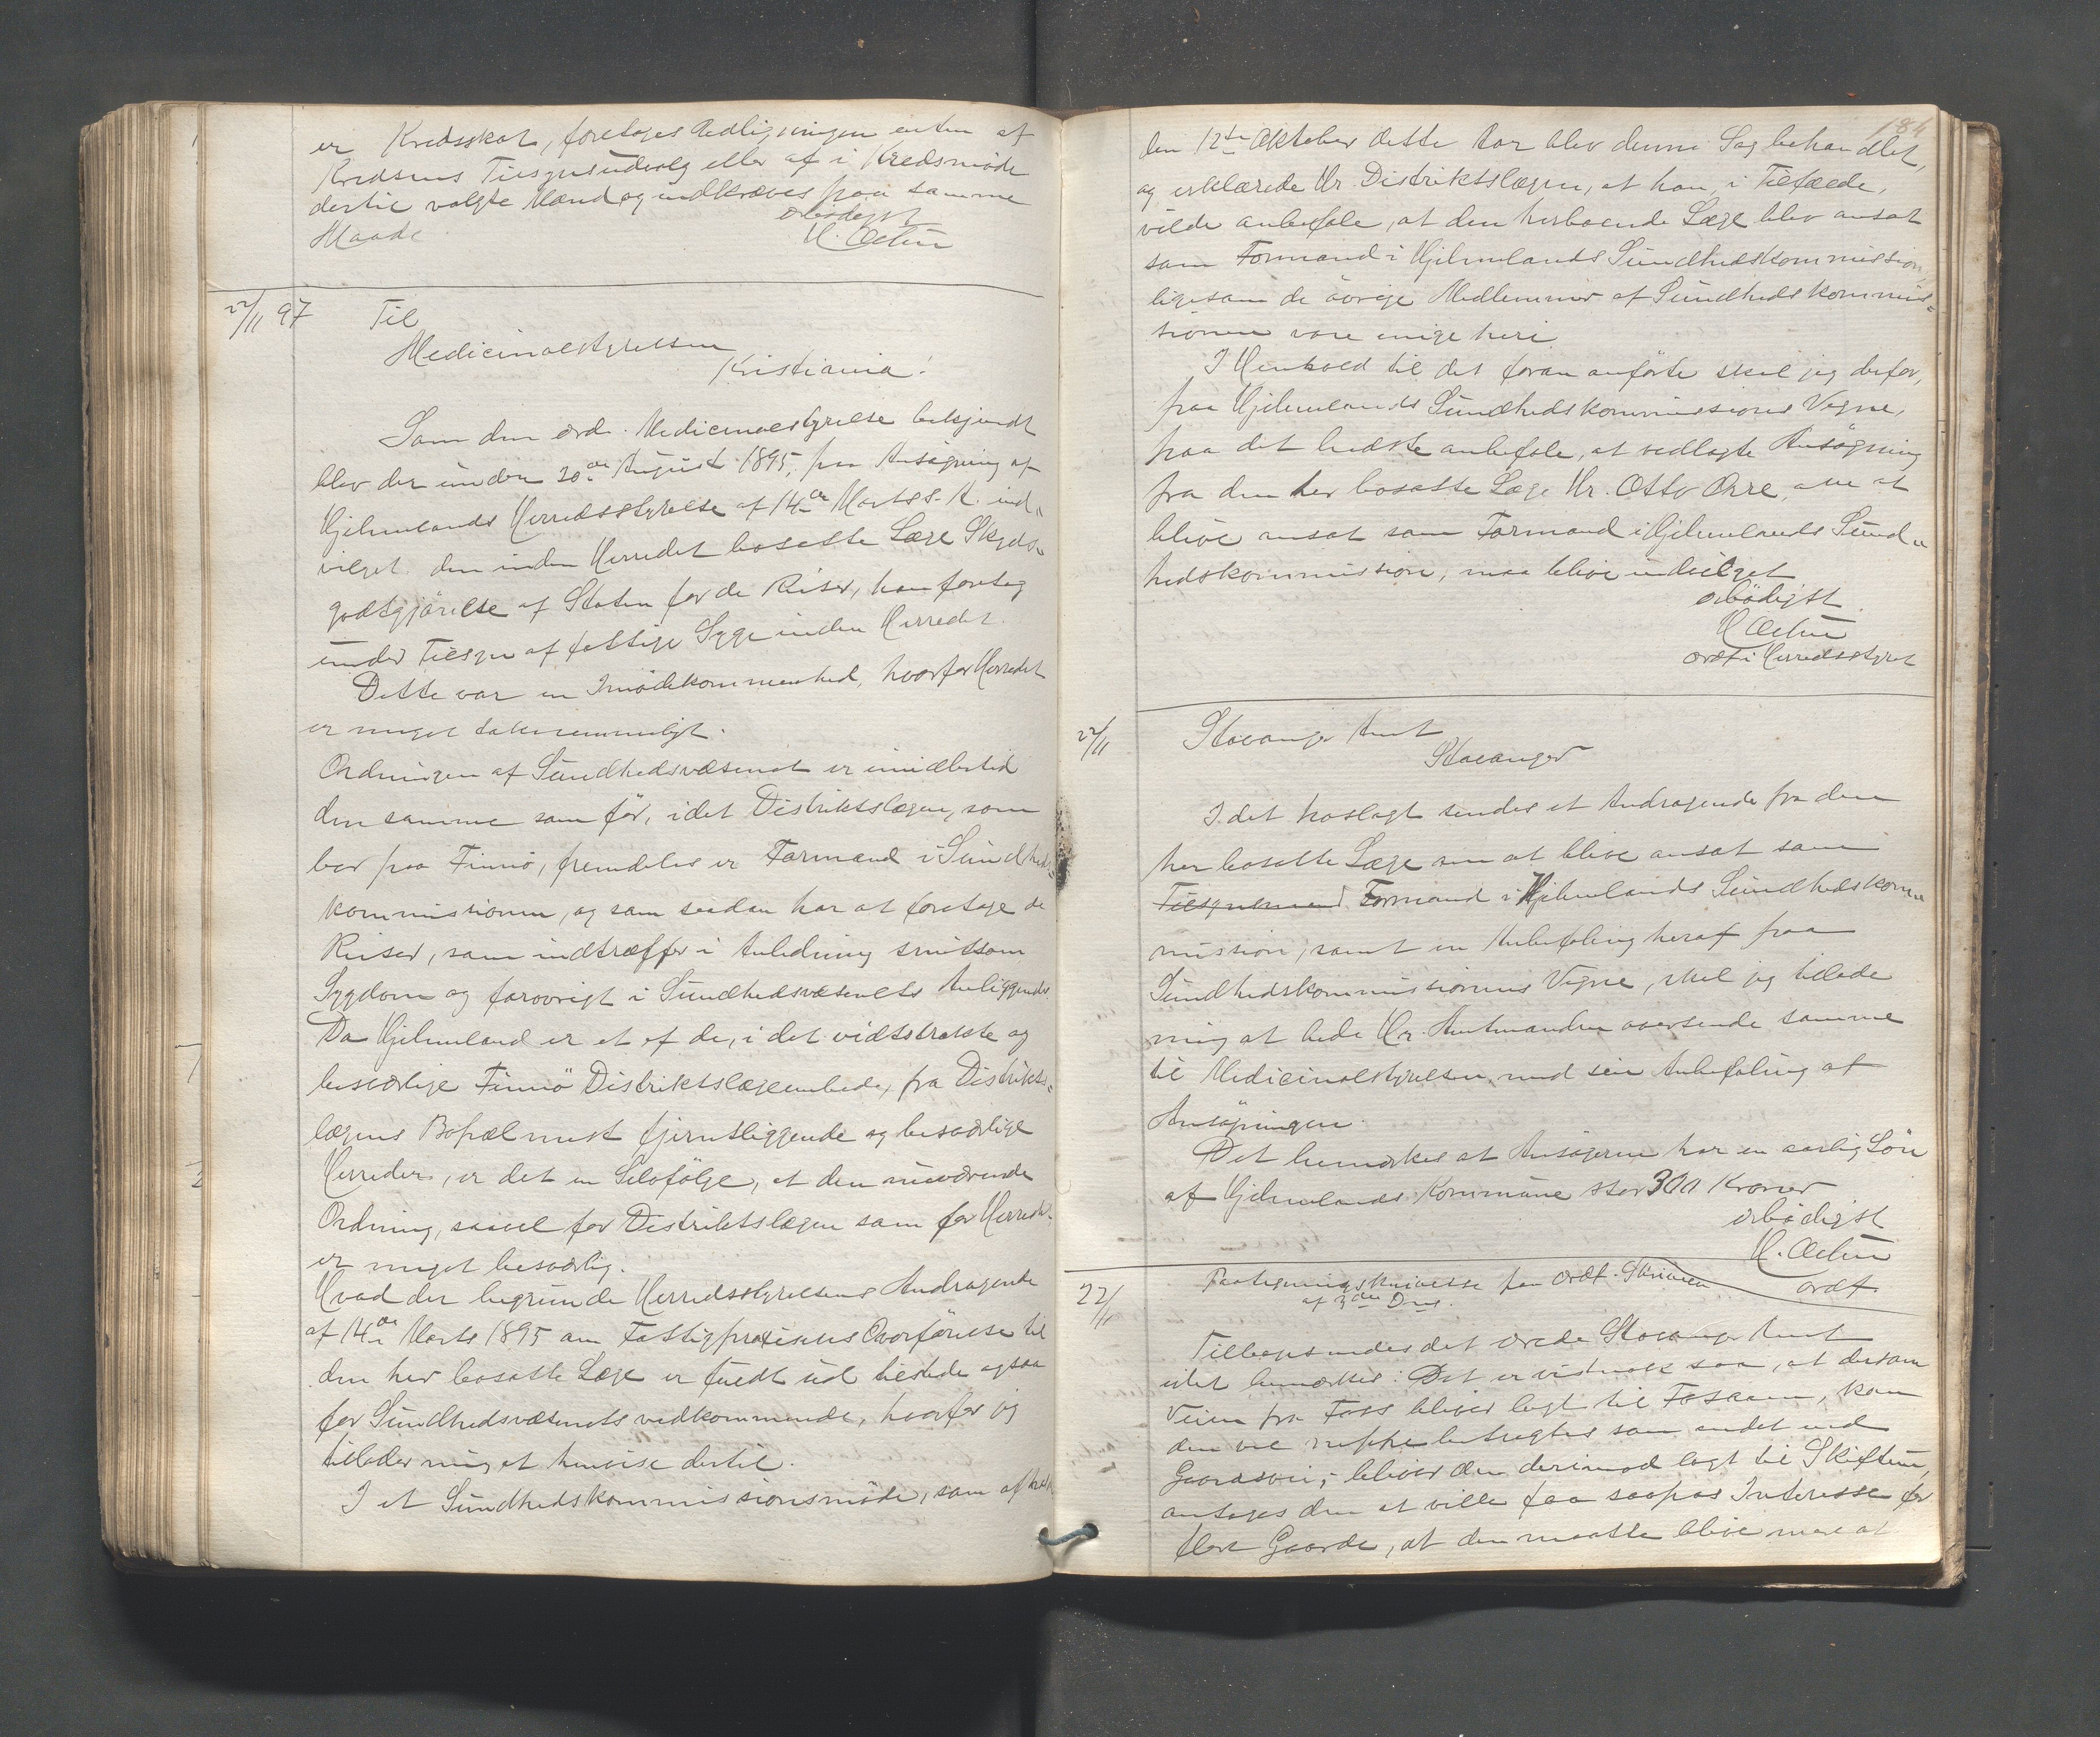 er Kredsskat, foretages Udligningen enten af
Kredsens Tilsynsudvalg eller af i Kredsmøde
dertil valgte Mænd og indkræves paa samme
Maade.
ærbødigst
22/11 97 Til
Medicinalstyrelsen
Kristiania!
Som den ærde. Medicinalstyrelse bekjendt
blev der under 20de August 1895, paa Ansøgning af
Hjelmelands Herredsstyrelse af 14de Marts s. A. ind„
vilget den inden Herredet bosatte Læge Skyds„
godtgjörelse af Staten for de Reiser, han foretog
under Tilsyn af fattige Syge inden Herredet.
Dette var en Imødekommenhed, hvorfor Herredet
er meget taknemmeligt.
Ordningen af Sundhedsvæsenet er imidlertid
den samme som för, idet Distriktslægen, som
bor paa Finnö, fremdeles er Formand i Sundheds„
kommissionen, og som saadan har at foretage de
Reiser, som indtræffer i Anledning smitsom
Sygdom og forøvrigt i Sundhedsvæsenets Anliggender
Da Hjelmeland er et af de, i det vidtstrakte og
besværlige Finnö Distriktslægeembede, fra Distrikts„
lægens Bopæl mest fjerntliggende og besværlige
Herreder, er det en Selvfölge, at den nuværende
Ordning, saavel for Distriktslægen som for Herredet
er meget besværlig.
Hvad der begrunde Herredsstyrelsens Andragende
af 14de Marts 1895 om Fattigpraxisens Overförelse til
den her bosatte Læge er fuldt ud tilstede ogsaa
for Sundhedsvæsenets vedkommende, hvorfor jeg
tillader mig at henvise dertil.
I et Sundhedskommissionsmöde, som afholdt
184
den 12te Oktober dette Aar blev denne Sag behandlet,
og erklærede Hr. Distriktslægen, at han, i Tilfælde,
vilde anbefale, at den herboende Læge blev ansat
som Formand i Hjelmelands Sundhedskommission
ligesom de övrige Medlemmer af Sundhedskommis„
sionen vare enige heri
I Henhold til det foran anförte skal jeg derfor,
paa Hjelmelands Sundhedskommissions Vegne,
paa det bedste anbefale, at vedlagte Ansögning
fra den her bosatte Læge Hr. Otto Orre, om at
blive ansat som Formand i Hjelmelands Sund„
hedskommission, maa blive indvilget
ærbödigst
ordf i Herredsstyret
22/11 Stavanger Amt
Stavanger
I det hoslagt sendes et Andragende fra den
her bosatte Læge om at blive ansat som
Tilsynsmand Formand i Hjelmelands Sundhedskom„
mission, samt en Anbefaling heraf paa
Sundhedskommissionens Vegne, skal jeg tillade
mig at bede Hr. Amtmanden oversende samme
til Medicinalstyrelsen med sin Anbefaling af
Ansögningen.
Det bemærkes at Ansögeren har en aarlig Lön
af Hjelmelands Kommune stor 300 Kroner
ærbödigst
ordf.
22/11 Paategningsskrivelse paa Ordf. Skrivelse
af 3die Ds.
Tilbagesendes det ærede Stavanger Amt
idet bemærkes: Det er vistnok saa, at dersom
Veien fra Foss bliver lagt til Fosaaen, kan
den vel neppe betragtes som andet end
Gaardsvei; bliver den derimod lagt til Skiftun,
antages den at ville faa saapas Interesse for
flere Gaarde, at den maatte blive mere at